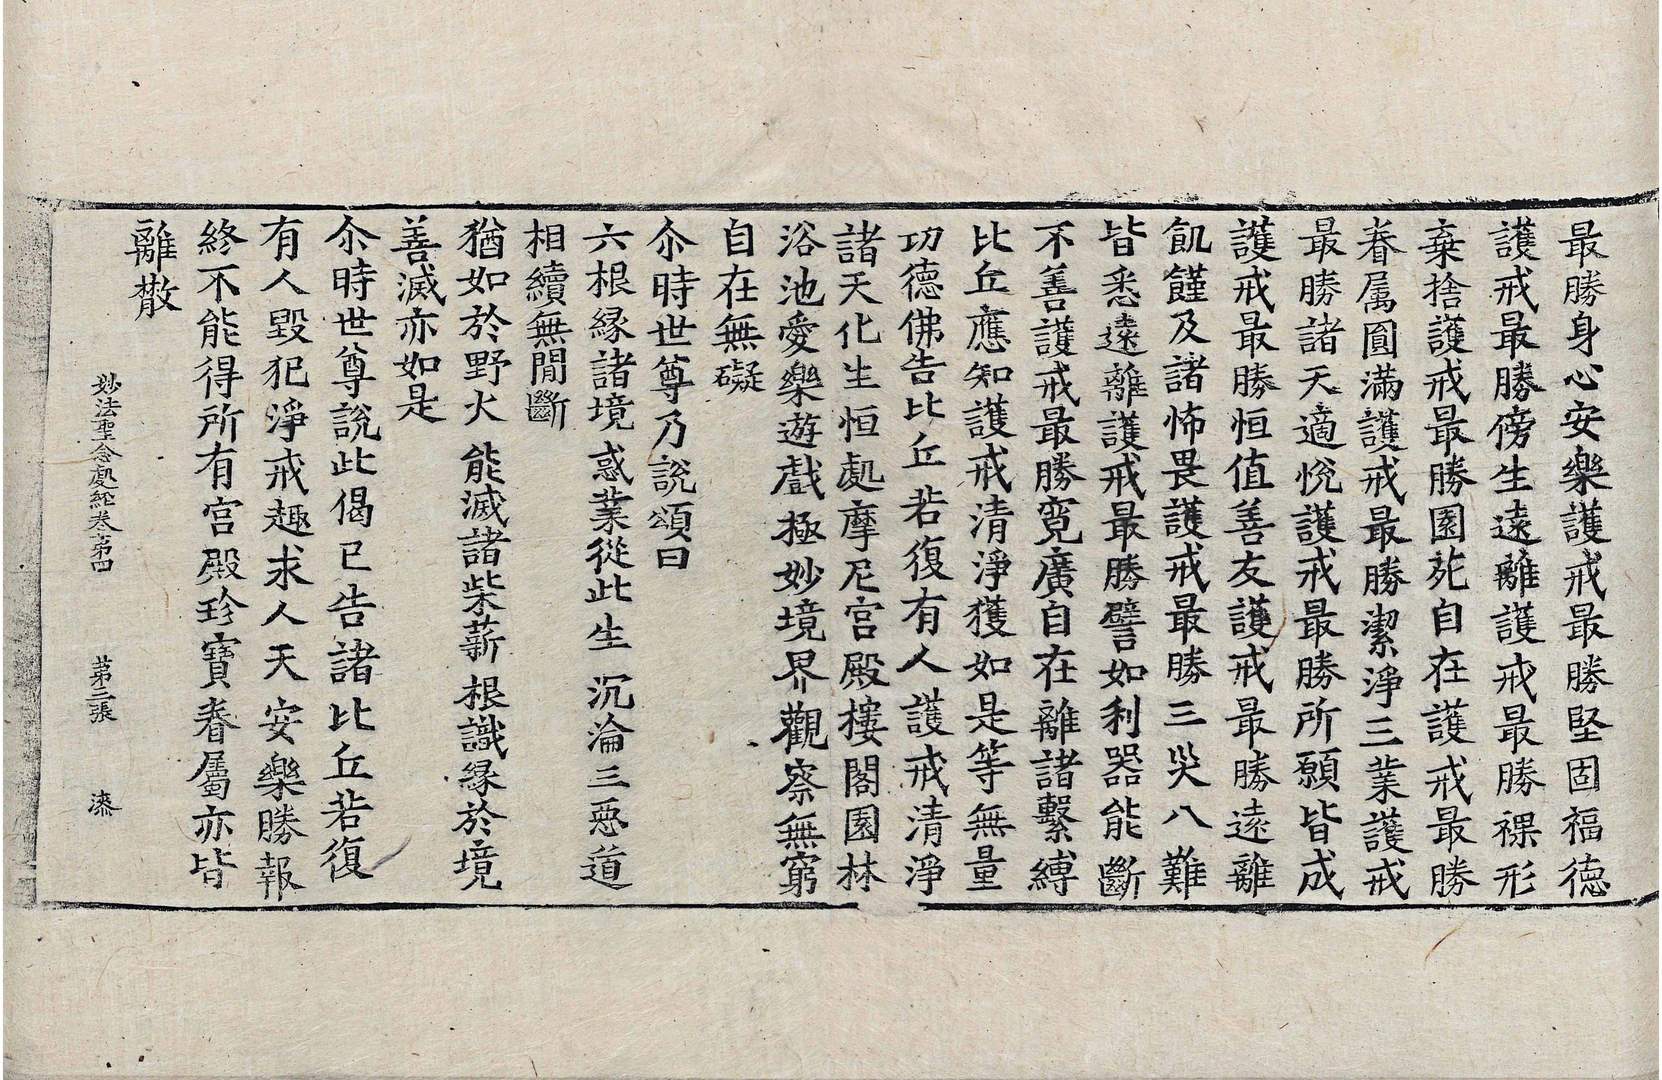 最勝身心安樂護戒最勝堅固福德
護戒最勝傍生遠離護戒最勝裸形
棄捨護戒最勝園苑自在護戒最勝
眷属圓滿護戒最勝潔淨三業護戒
最勝諸天適悅護戒最勝所願皆成
護戒最勝恒值善友護戒最勝遠離
飢饉及諸怖畏護戒最勝三災八難
皆悉遠離護戒最勝譬如利器能斷
不善護戒最勝寬廣自在離諸繫縛
比丘應知護戒清淨獲如是等無量
功德佛告比丘若復有人護戒清淨
諸天化生恒處摩尼宮殿樓閣園林
浴池愛樂遊戲極妙境界觀察無窮
自在無礙
尒時世尊乃說頌曰
六根緣諸境 惑業從此生 沉淪三惡道
相續無間斷
猶如於野火 能滅諸柴薪 根識緣於境
善滅亦如是
尒時世尊說此偈已告諸比丘若復
有人毀犯淨戒趣求人天安樂勝報
終不能得所有宮殿珍寶眷屬亦皆
離散
妙法聖念處經卷第四 第三張 漆